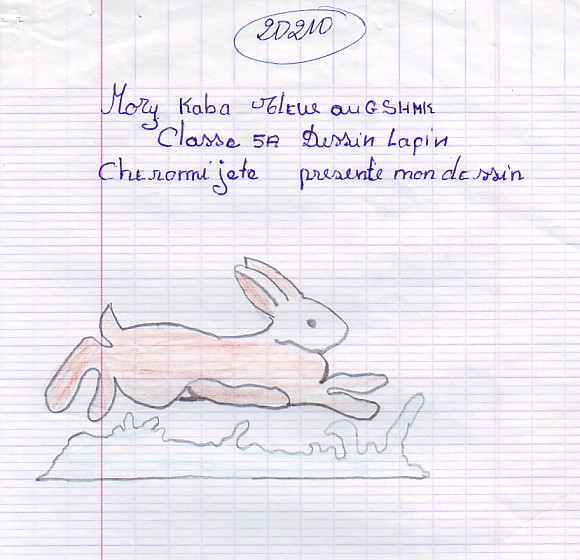 20210
Mory Kaba élève au GSHMK
Classe 5A Dessin Lapin
Cher ami je te presente mon dessin